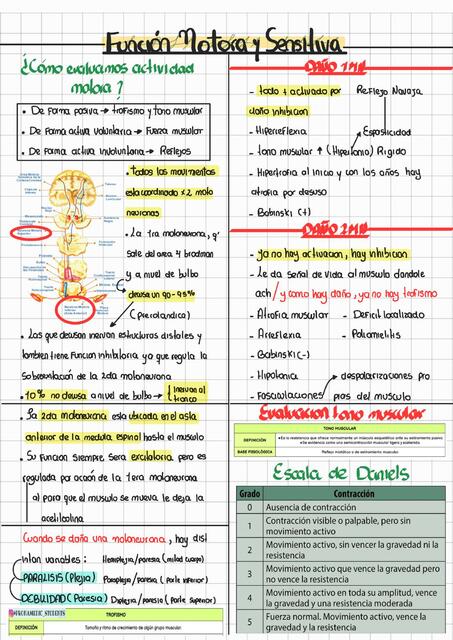 Función Motora y Sensitiva
¿Cómo evaluamos actividad
motora?
• De forma pasiva → trofismo y tono muscular
• De forma activa voluntaria → Fuerza muscular
• De forma activa involuntaria → Reflejos
• Todos los movimientos
esta coordinado x 2 moto
neuronas
• La 1era motoneurona, q'
sale del area 4 brodman
y a nivel de bulbo
decusa un 90-95%
(Precrolandica)
• Los que decusan inervan estructuras distales y
tambien tiene funcion inhibitoria ya que regula la
sobreexitacion de la 2da motoneurona
• 10% no decusa a nivel de bulbo → inervan al
tronco
• La 2da motoneurona esta ubicada en el asta
anterior de la medula espinal hasta el musculo
• Su funcion siempre sera excitatoria pero es
regulada por acción de la 1era motoneurona
al para que el musculo se mueva le deja la
acetilcolina
Cuando se daña una motoneurona, hay dist
intan variables: Hemiplejia/paresia (mitad cuerpo)
→ PARALISIS (Plejia) Paraplejia/paresia (parte inferior)
→ DEBILIDAD (Paresia) Diplejia/paresia (parte superior)
TROFISMO
DEFINICIÓN
Tamaño y ritmo de crecimiento de algún grupo muscular.
DAÑO 1MN
- todo + activado por
daño inhibicion
Reflejo Navaja
- Hiperreflexia
Espasticidad
- tono muscular ↑ (Hipertonia) Rigido
- Hipertrofia al inicio y con los años hay
atrofia por desuso
- Babinski (+)
DAÑO 2MN
- ya no hay activacion, hay inhibicion
- Le da señal de vida al musculo dandole
ach / y como hay daño, ya no hay trofismo
- Atrofia muscular - Deficit localizado
- Arreflexia - Poliomielitis
- Babinski (-)
- Hipotonia → despolarizaciones pro
- Fasciculaciones pias del musculo
Evaluacion tono muscular
TONO MUSCULAR
DEFINICIÓN
BASE FISIOLÓGICA
Reflejo miotático o de estiramiento muscular.
Escala de Daniels
Grado Contracción
0 Ausencia de contracción
1 Contracción visible o palpable, pero sin
movimiento activo
2 Movimiento activo, sin vencer la gravedad ni la
resistencia
3 Movimiento activo que vence la gravedad pero
no vence la resistencia
4 Movimiento activo en toda su amplitud, vence
la gravedad y una resistencia moderada
5 Fuerza normal. Movimiento activo, vence la
gravedad y la resistencia